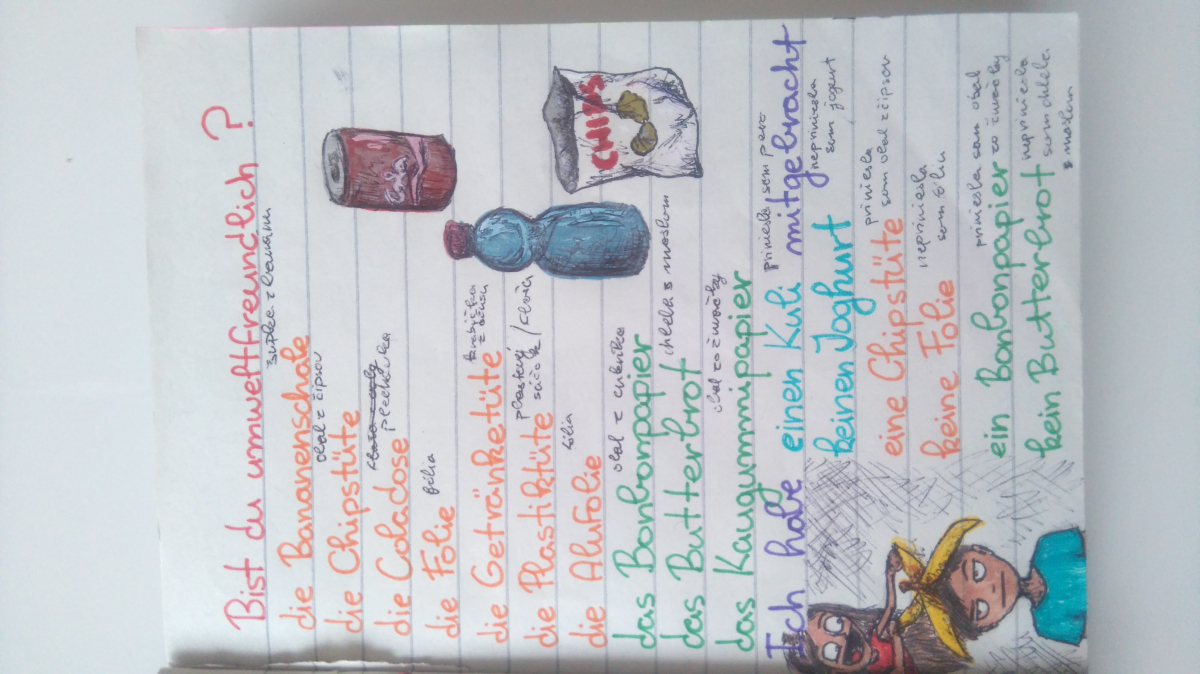 Bist du umweltfreundlich ?
šupka z banánu
die Bananenschale
obal z čipsov
die Chipstüte
plechovka
die Coladose
fólia
die Folie
krabička
z džúsu
die Getränketüte
plastový
sáčok /
die Plastiktüte
fólia
die Alufolie
obal z cukríka
das Bonbonpapier
chleba s maslom
das Butterbrot
obal zo žuvačky
das Kaugummipapier
CHIPS
priniesla som pero
Ich habe einen Kuli mitgebracht
nepriniesla
som jogurt
keinen Joghurt
priniesla
som obal z čipsov
eine Chipstüte
nepriniesla
som fóliu
keine Folie
priniesla som obal
zo žuvačky
ein Bonbonpapier
nepriniesla
som chleba
s maslom
kein Butterbrot